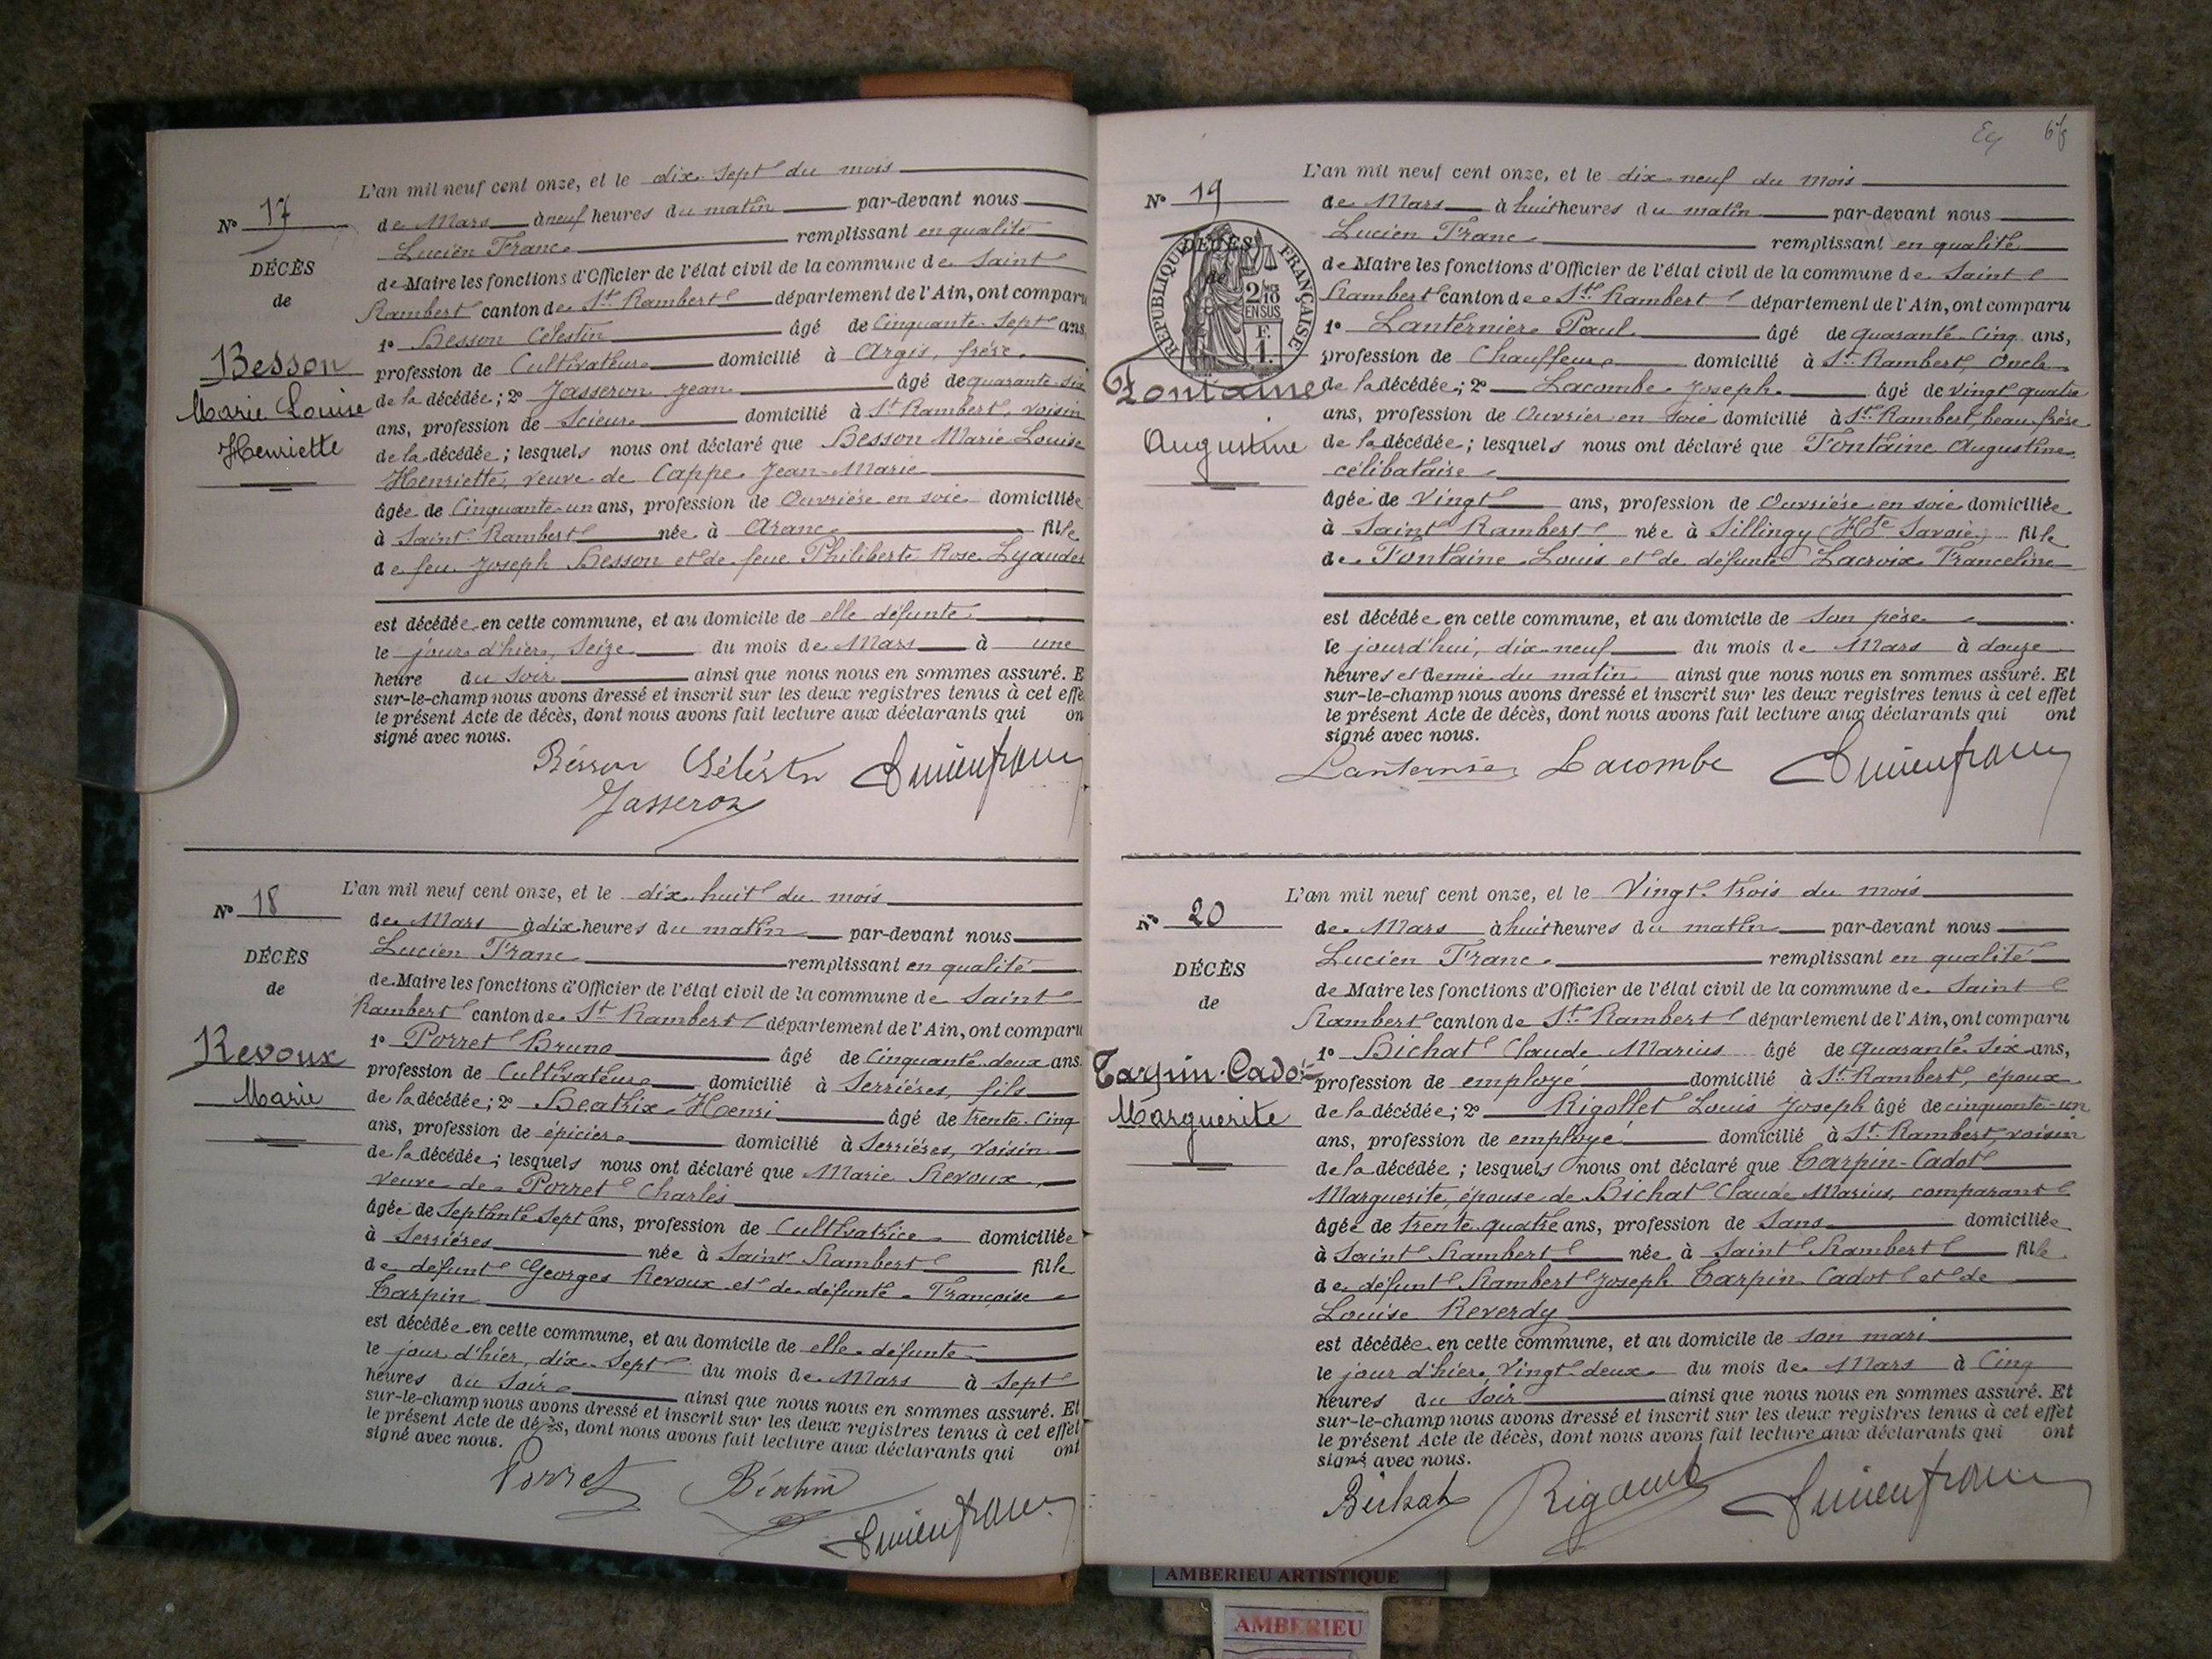 N° 17
DÉCÈS
de
Besson
Marie Louise
Henriette
L'an mil neuf cent onze, et le dix-sept du mois
de Mars à neuf heures du matin par-devant nous
Lucien Franc remplissant en qualité
de Maire les fonctions d'Officier de l'état civil de la commune de Saint
Rambert canton de St Rambert département de l'Ain, ont comparu
1° Besson Célestin âgé de Cinquante-sept ans,
profession de Cultivateur domicilié à Argis, frère
de la décédée; 2° Jasseron Jean âgé de quarante-six
ans, profession de Scieur domicilié à St Rambert, voisin
de la décédée; lesquels nous ont déclaré que Besson Marie Louise
Henriette, veuve de Cappe Jean-Marie
âgée de Cinquante-un ans, profession de Ouvrière en soie domiciliée
à Saint Rambert née à Aranc fille
de feu Joseph Besson et de feue Philiberte Rose Lyaudet
est décédée en cette commune, et au domicile de elle défunte
le jour d'hier, Seize du mois de Mars à une
heure du soir ainsi que nous nous en sommes assuré. E
sur-le-champ nous avons dressé et inscrit sur les deux registres tenus à cet effe
le présent Acte de décès, dont nous avons fait lecture aux déclarants qui on
signé avec nous.
Bésson Céléstin Lucien franc
Jasseron
N° 18
DÉCÈS
de
Revoux
Marie
L'an mil neuf cent onze, et le dix-huit du mois
de Mars à dix heures du matin par-devant nous
Lucien Franc remplissant en qualité
de Maire les fonctions d'Officier de l'état civil de la commune de Saint
Rambert canton de St Rambert département de l'Ain, ont comparu
1° Porret Bruno âgé de Cinquante-deux ans.
profession de Cultivateur domicilié à Serrières, fils
de la décédée; 2° Béatrix Henri âgé de trente-cinq
ans, profession de épicier domicilié à Serrières, voisin
de la décédée; lesquels nous ont déclaré que Marie Revoux,
veuve de Porret Charles
âgée de Septante sept ans, profession de Cultivatrice domiciliée
à Serrières née à Saint Rambert fille
de défunt Georges Revoux et de défunte Françoise
Tarpin
est décédée en cette commune, et au domicile de elle défunte
le jour d'hier, dix-sept du mois de Mars à sept
heures du soir ainsi que nous nous en sommes assuré. Et
sur-le-champ nous avons dressé et inscrit sur les deux registres tenus à cet effet
le présent Acte de décès, dont nous avons fait lecture aux déclarants qui ont
signé avec nous.
Porret Béatrix
Lucien franc
N° 19
DÉCÈS
de
RÉPUBLIQUE FRANÇAISE
2/10 EN SUS
Fontaine
Augustine
L'an mil neuf cent onze, et le dix-neuf du mois
de Mars à huit heures du matin par-devant nous
Lucien Franc remplissant en qualité
de Maire les fonctions d'Officier de l'état civil de la commune de Saint
Rambert canton de St Rambert département de l'Ain, ont comparu
1° Lanternier Paul âgé de quarante-cinq ans,
profession de Chauffeur domicilié à St Rambert, Oncle
de la décédée; 2° Lacombe Joseph âgé de vingt quatre
ans, profession de Ouvrier en soie domicilié à St Rambert, beau-frère
de la décédée; lesquels nous ont déclaré que Fontaine Augustine
célibataire
âgée de Vingt ans, profession de Ouvrière en soie domiciliée
à Saint Rambert née à Sillingy (Hte Savoie) fille
de Fontaine Louis et de défunte Lacroix Franceline
est décédée en cette commune, et au domicile de son père
le jourd'hui, dix-neuf du mois de Mars à douze
heures et demie du matin ainsi que nous nous en sommes assuré. Et
sur-le-champ nous avons dressé et inscrit sur les deux registres tenus à cet effet
le présent Acte de décès, dont nous avons fait lecture aux déclarants qui ont
signé avec nous.
Lanternier Lacombe Lucien franc
N° 20
DÉCÈS
de
Tarpin-Cadot
Marguerite
L'an mil neuf cent onze, et le Vingt-trois du mois
de Mars à huit heures du matin par-devant nous
Lucien Franc remplissant en qualité
de Maire les fonctions d'Officier de l'état civil de la commune de Saint
Rambert canton de St Rambert département de l'Ain, ont comparu
1° Bichat Claude Marius âgé de quarante-six ans,
profession de employé domicilié à St Rambert, époux
de la décédée; 2° Rigollet Louis Joseph âgé de cinquante-un
ans, profession de employé domicilié à St Rambert, voisin
de la décédée; lesquels nous ont déclaré que Tarpin-Cadot
Marguerite, épouse de Bichat Claude Marius, comparant
âgée de trente-quatre ans, profession de Sans domiciliée
à Saint Rambert née à Saint Rambert fille
de défunt Rambert Joseph Tarpin Cadot et de
Louise Reverdy
est décédée en cette commune, et au domicile de son mari
le jour d'hier, Vingt-deux du mois de Mars à Cinq
heures du soir ainsi que nous nous en sommes assuré. Et
sur-le-champ nous avons dressé et inscrit sur les deux registres tenus à cet effet
le présent Acte de décès, dont nous avons fait lecture aux déclarants qui ont
signé avec nous.
Bichat Lucien franc
AMBERIEU ARTISTIQUE
AMBERIEU